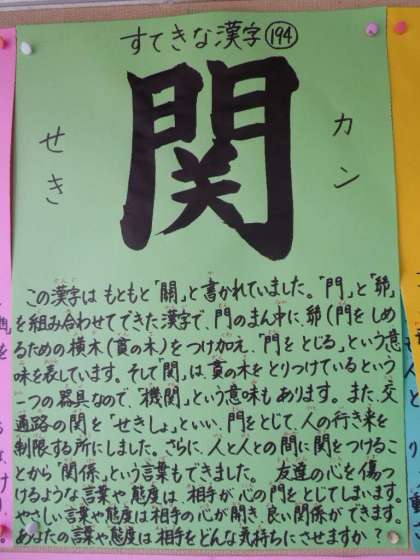 すてきな漢字 194
関
せき
カン
この漢字はもともと「關」と書かれていました。「門」と「丱」
を組み合わせてできた漢字で、門のまん中に、丱(門をしめ
るための横木(貫の木)をつけ加え、「門をとじる」という意
味を表しています。そして「関」は、貫の木をとりつけているという
一つの器具なので、「機関」という意味もあります。また、交
通路の関を「せきしょ」といい、門をとじて、人の行き来を
制限する所にしました。さらに、人と人との間に関をつけるこ
とから「関係」という言葉もできました。 友達の心を傷つ
けるような言葉や態度は、相手が心の門をとじてしまいます。
やさしい言葉や態度は相手の心が開き、良い関係ができます。
あなたの言葉や態度は相手をどんな気持ちにさせますか?